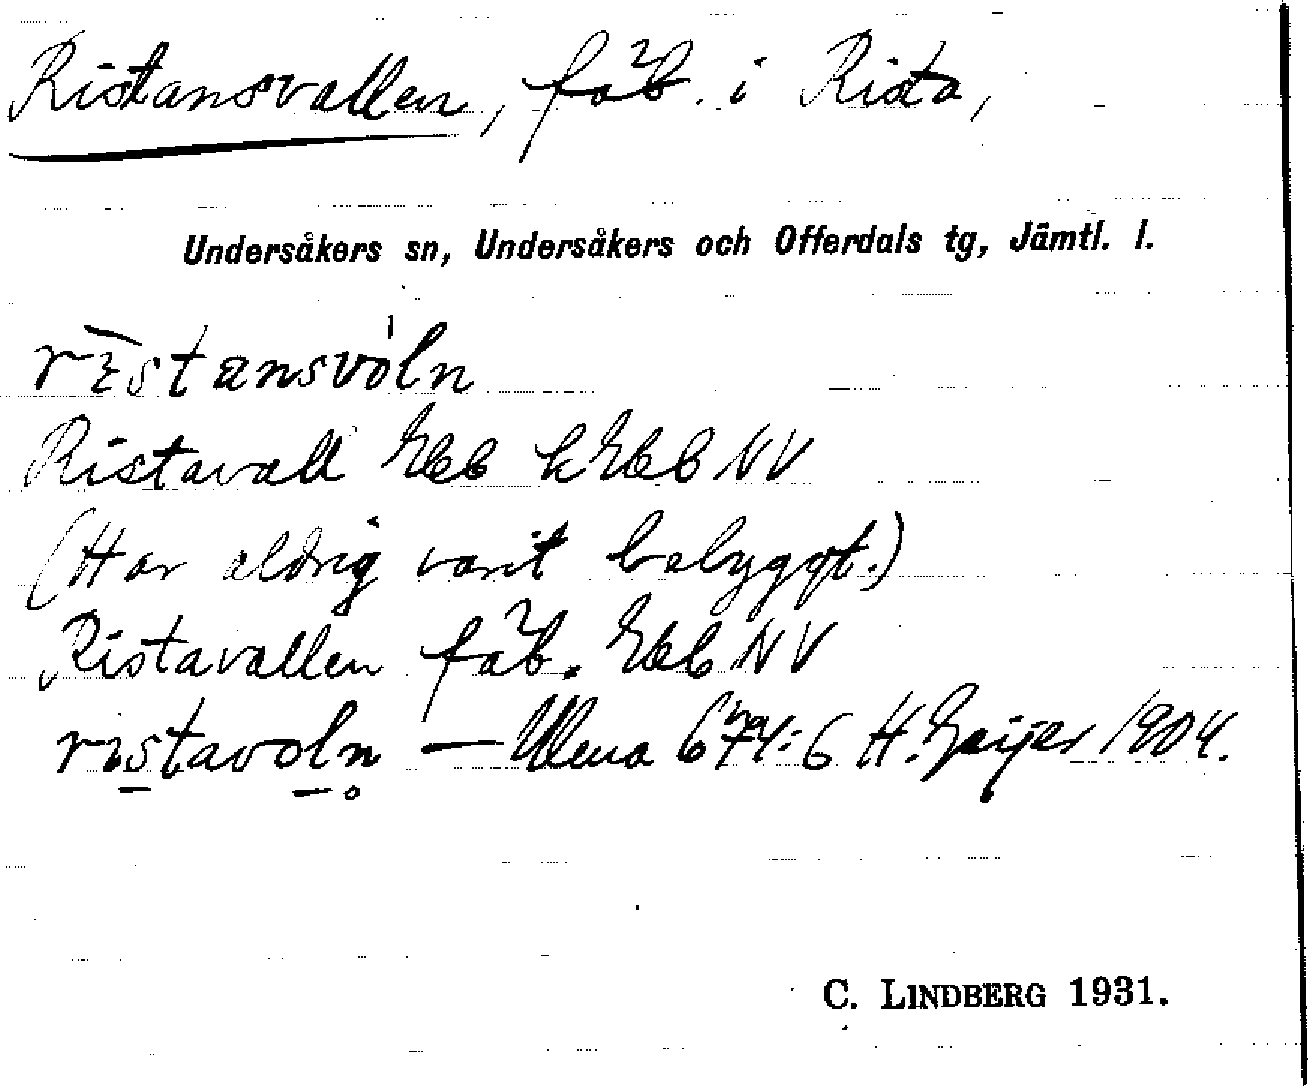 Ristansvallen, fäb. i Rista,
Undersåkers sn, Undersåkers och Offerdals tg, Jämtl. l.
ristansvóln
Ristavall Ekb kEkb NV
(Har aldrig varit bebyggt.)
Ristavallen fäb. Ekb NV
ristavoln — Ulma 674:6 H. Geijer 1904.
C. LINDBERG 1931.